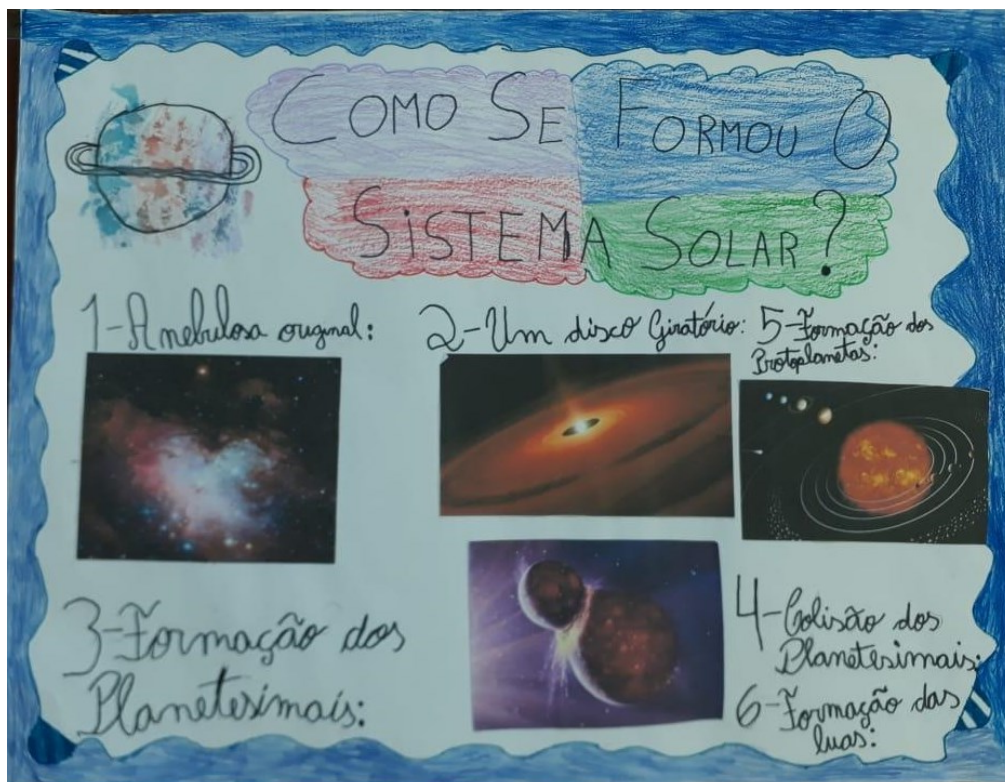 COMO SE FORMOU O
SISTEMA SOLAR?
1-A nebulosa original:
2-Um disco Giratório:
5-Formação dos
Protoplanetas:
3-Formação dos
Planetesimais:
4-Colisão dos
Planetesimais:
6-Formação das
luas: